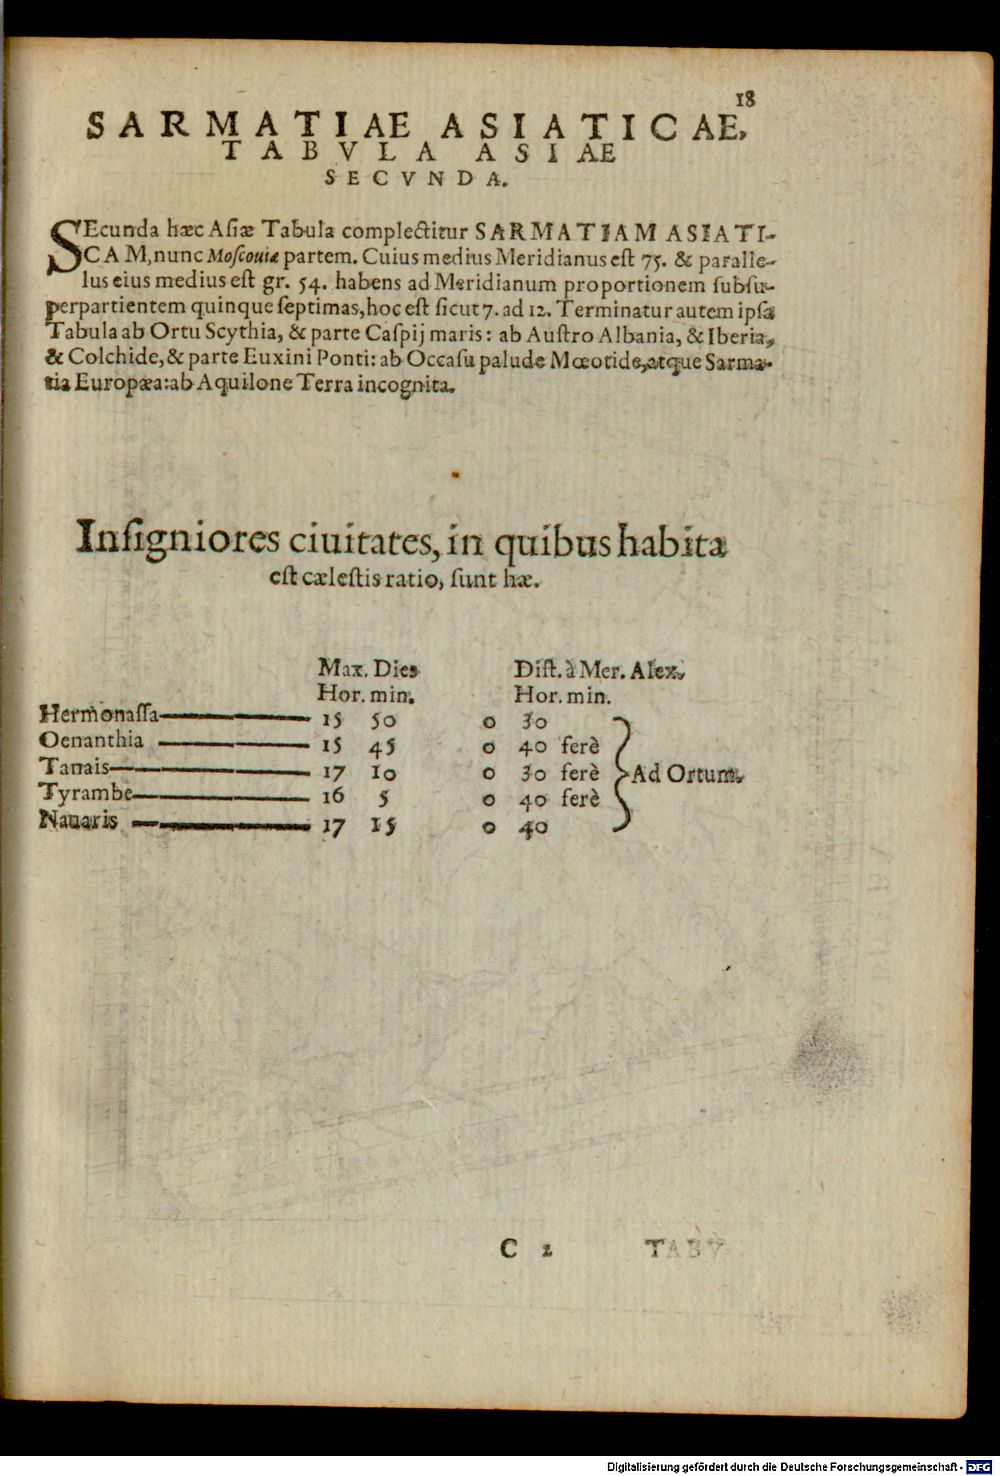 18
SARMATIAE ASIATICAE,
TABVLA ASIAE
SECVNDA.
SEcunda hæc Aſiæ Tabula complectitur SARMATIAM ASIATI-
CAM, nunc Moſcouiæ partem. Cuius medius Meridianus eſt 75. & paralle-
lus eius medius eſt gr. 54. habens ad Meridianum proportionem subſu-
perpartientem quinque ſeptimas, hoc eſt ſicut 7. ad 12. Terminatur autem ipſa
Tabula ab Ortu Scythia, & parte Caſpij maris: ab Auſtro Albania, & Iberia,
& Colchide, & parte Euxini Ponti: ab Occaſu palude Mœotide, atque Sarma-
tia Europæa: ab Aquilone Terra incognita.
Inſigniores ciuitates, in quibus habita
eſt cæleſtis ratio, ſunt hæ.
Max. Dies Diſt. à Mer. Alex.
Hor. min. Hor. min.
Hermonaſſa 15 50 0 30
Oenanthia 15 45 0 40 ferè
Tanais 17 10 0 30 ferè Ad Ortum.
Tyrambe 16 5 0 40 ferè
Nauaris 17 15 0 40
C 2 TABV-
Digitalisierung gefördert durch die Deutsche Forschungsgemeinschaft - DFG